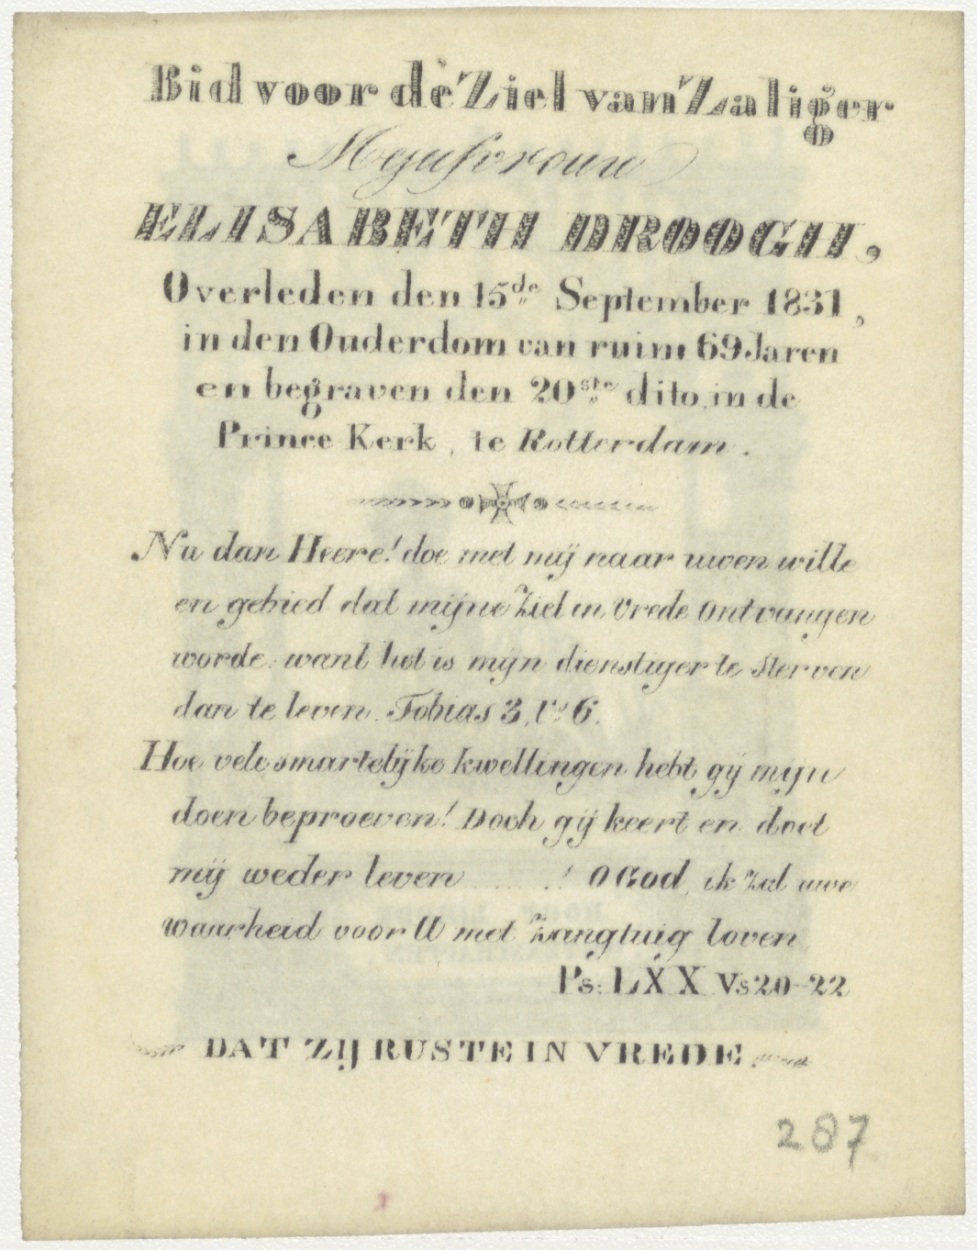 Bid voor de Ziel van Zaliger
Mejufvrouw
ELISABETH DROOGH,
Overleden den 15de September 1831,
in den Ouderdom van ruim 69 Jaren
en begraven den 20ste dito, in de
Prince Kerk, te Rotterdam.
Nu dan Heere! doe met mij naar uwen wille
en gebied dat mijne Ziel in Vrede Ontvangen
worde: want het is mijn dienstiger te Sterven
dan te leven. Tobias 3, Vs 6.
Hoe vele smartelijke kwellingen hebt gij mijn
doen beproeven! Doch gij keert en doet
mij weder leven .....! O God, ik Zal uwe
waarheid voor U met Zangtuig loven
Ps: LXX Vs 20-22
DAT ZIJ RUSTE IN VREDE.
287